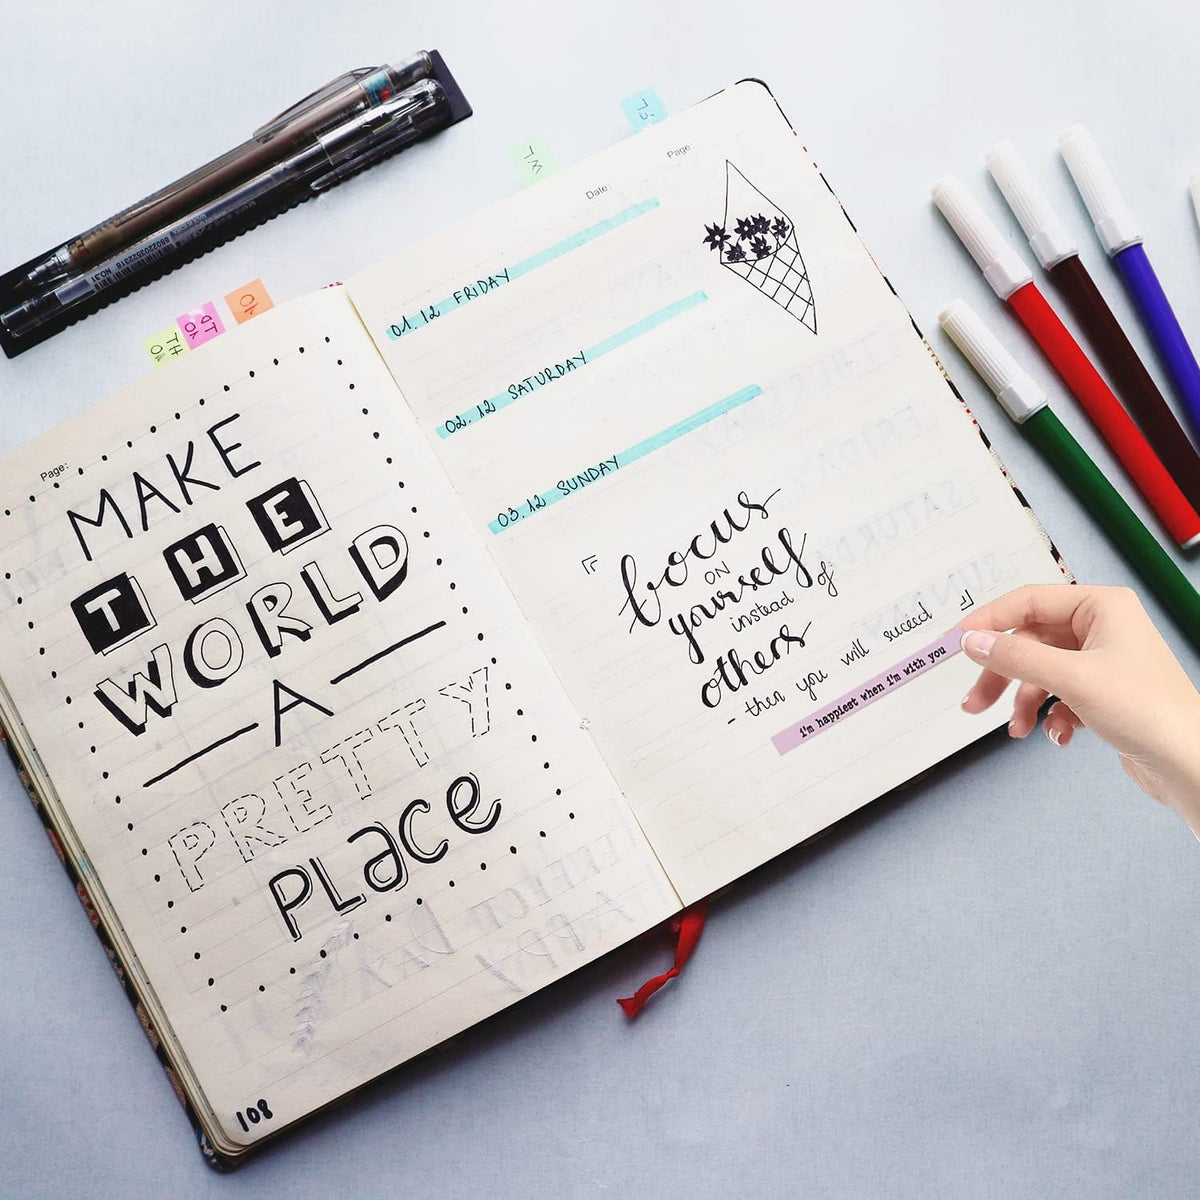 Page:
MAKE
THE
WORLD
A
PRETTY
PLACE
108
Date:
Page
01. 12 FRIDAY
02. 12 SATURDAY
03. 12 SUNDAY
focus
ON
yourself
instead of
others
- then you will succeed
i'm happiest when i'm with you